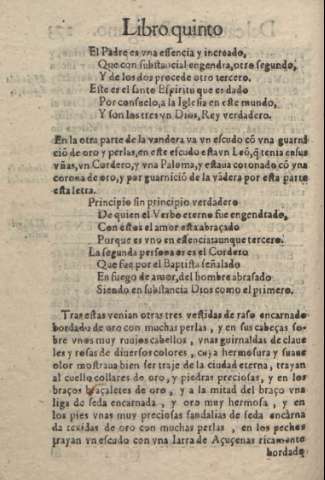 Libro quinto
El Padre es vna essencia y increado,
Que con substancial engendra, otro segundo,
Y de los dos procede otro tercero.
Este es el santo Espiritu que es dado
Por consuelo, a la Iglesia en este mundo,
Y son los tres vn Dios, Rey verdadero.
En la otra parte de la vandera va vn escudo cõ vna guarni
ciõ de oro y perlas, en este escudo esta vn Leõ, q̃ tenia en sus
vñas, vn Cordero, y vna Paloma, y estaua coronado cõ vna
corona de oro, y por guarniciõ de la vãdera por esta parte
esta letra.
Principio sin principio verdadero
De quien el Verbo eterno fue engendrado,
Con estos el amor esta abraçado
Porque es vno en essencia aunque tercero.
La segunda persona es es el Cordero
Que fue por el Baptista señalado
En fuego de amor, del hombre abrasado
Siendo en substancia Dios como el primero.
Tras estas venian otras tres vestidas de raso encarnado
bordado de oro con muchas perlas, y en sus cabeças so-
bre vnos muy ruuios cabellos, vnas guirnaldas de claue
les y rosas de diuersos colores, cuya hermosura y suaue
olor mostraua bien ser traje de la ciudad eterna, trayan
al cuello collares de oro, y piedras preciosas, y en los
braços braçaletes de oro, y a la mitad del braço vna
liga de seda encarnada, y oro muy hermosa, y en
los pies vnas muy preciosas sandalias de seda encarna
da texidas de oro con muchas perlas, en los pechos
trayan vn escudo con vna jarra de Açuçenas ricamente
bordado